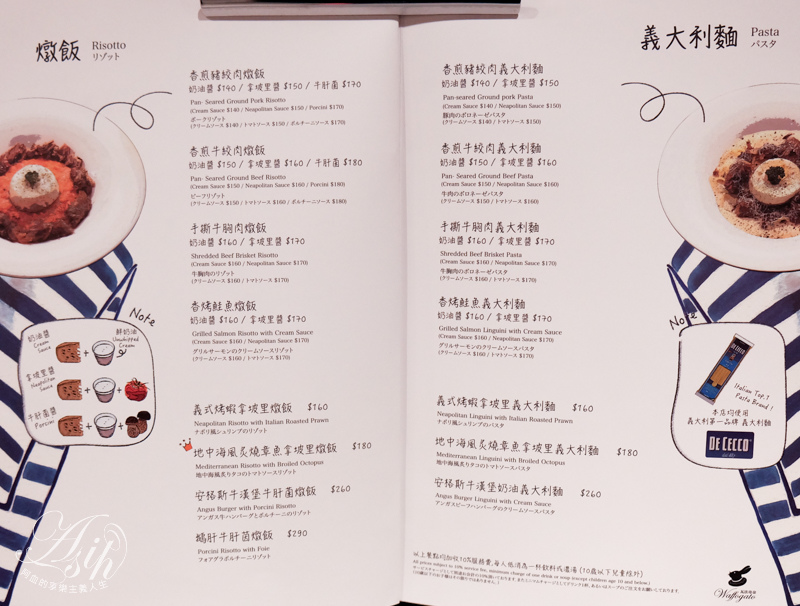 燉飯 Risotto
リゾット
香煎豬絞肉燉飯
奶油醬 $140 / 拿坡里醬 $150 / 牛肝菌 $170
Pan- Seared Ground Pork Risotto
(Cream Sauce $140 / Neapolitan Sauce $150 / Porcini $170)
ポークリゾット
(クリームソース $140 / トマトソース $150 / ポルチーニソース $170)
香煎牛絞肉燉飯
奶油醬 $150 / 拿坡里醬 $160 / 牛肝菌 $180
Pan- Seared Ground Beef Risotto
(Cream Sauce $150 / Neapolitan Sauce $160 / Porcini $180)
ビーフリゾット
(クリームソース $150 / トマトソース $160 / ポルチーニソース $180)
手撕牛胸肉燉飯
奶油醬 $160 / 拿坡里醬 $170
Shredded Beef Brisket Risotto
(Cream Sauce $160 / Neapolitan Sauce $170)
牛胸肉のリゾット
(クリームソース $160 / トマトソース $170)
香烤鮭魚燉飯
奶油醬 $160 / 拿坡里醬 $170
Grilled Salmon Risotto with Cream Sauce
(Cream Sauce $160 / Neapolitan Sauce $170)
グリルサーモンのクリームソースリゾット
(クリームソース $160 / トマトソース $170)
義式烤蝦拿坡里燉飯 $160
Neapolitan Risotto with Italian Roasted Prawn
ナポリ風シュリンプのリゾット
地中海風炙燒章魚拿坡里燉飯 $180
Mediterranean Risotto with Broiled Octopus
地中海風炙りタコのトマトソースリゾット
安格斯牛漢堡牛肝菌燉飯 $260
Angus Burger with Porcini Risotto
アンガス牛ハンバーグとポルチーニのリゾット
鴨肝牛肝菌燉飯 $290
Porcini Risotto with Foie
フォアグラポルチーニリゾット
Note
奶油醬
Cream
Sauce
鮮奶油
Unwhipped
Cream
拿坡里醬
Neapolitan
Sauce
牛肝菌醬
Porcini
Asih
義大利麵 Pasta
パスタ
香煎豬絞肉義大利麵
奶油醬 $140 / 拿坡里醬 $150
Pan-seared Ground pork Pasta
(Cream Sauce $140 / Neapolitan Sauce $150)
豚肉のボロネーゼパスタ
(クリームソース $140 / トマトソース $150)
香煎牛絞肉義大利麵
奶油醬 $150 / 拿坡里醬 $160
Pan-seared Ground Beef Pasta
(Cream Sauce $150 / Neapolitan Sauce $160)
牛肉のボロネーゼパスタ
(クリームソース $150 / トマトソース $160)
手撕牛胸肉義大利麵
奶油醬 $160 / 拿坡里醬 $170
Shredded Beef Brisket Pasta
(Cream Sauce $160 / Neapolitan Sauce $170)
牛胸肉のボロネーゼパスタ
(クリームソース $160 / トマトソース $170)
香烤鮭魚義大利麵
奶油醬 $160 / 拿坡里醬 $170
Grilled Salmon Linguini with Cream Sauce
(Cream Sauce $160 / Neapolitan Sauce $170)
グリルサーモンのクリームソースパスタ
(クリームソース $160 / トマトソース $170)
義式烤蝦拿坡里義大利麵 $160
Neapolitan Linguini with Italian Roasted Prawn
ナポリ風シュリンプのパスタ
地中海風炙燒章魚拿坡里義大利麵 $180
Mediterranean Linguini with Broiled Octopus
地中海風炙りタコのトマトソースパスタ
安格斯牛漢堡奶油義大利麵 $260
Angus Burger Linguini with Cream Sauce
アンガスビーフハンバーグのクリームソースパスタ
Note
Italian Top 1
Pasta Brand!
本店均使用
義大利第一品牌 義大利麵
DE CECCO
以上餐點均加收10%服務費,每人低消為一杯飲料或濃湯 (10歲以下兒童除外)
All prices subject to 10% service fee, minimum charge of one drink or soup (except children age 10 and below.)
Waffogato